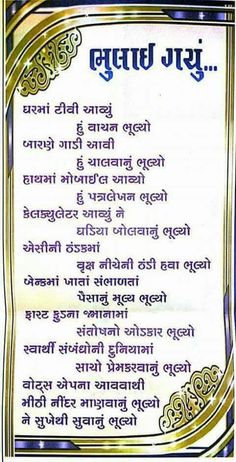 ભુલાઈ ગયું...
ઘરમાં ટીવી આવ્યું
હું વાચન ભૂલ્યો
બારણે ગાડી આવી
હું ચાલવાનું ભૂલ્યો
હાથમાં મોબાઈલ આવ્યો
હું પત્રલેખન ભૂલ્યો
કેલક્યુલેટર આવ્યું ને
ઘડિયા બોલવાનું ભૂલ્યો
એસીની ઠંડકમાં
વૃક્ષ નીચેની ઠંડી હવા ભૂલ્યો
બેન્કમાં ખાતાં સંભાળતાં
પૈસાનું મૂલ્ય ભૂલ્યો
ફાસ્ટ ફુડના જમાનામાં
સંતોષનો ઓડકાર ભૂલ્યો
સ્વાર્થી સંબંધોની દુનિયામાં
સાચો પ્રેમકરવાનું ભૂલ્યો
વોટ્સ એપના આવવાથી
મીઠી નીંદર માણવાનું ભૂલ્યો
ને સુખેથી સુવાનું ભૂલ્યો